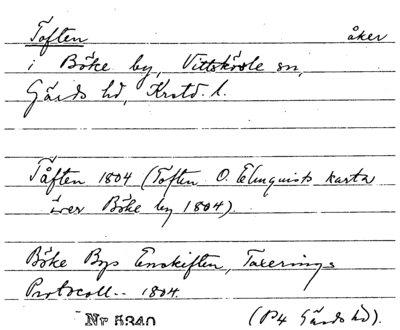 Toften åker
i Böke by, Vittskövle sn,
Gärds hd, Krstd. l.
Tåften 1804 (Toften O. Elmquists karta
över Böke by 1804)
Böke Bys Enskiften, Taxerings
Protocoll.. 1804.
Nr 5340 (P4 Gärds hd).